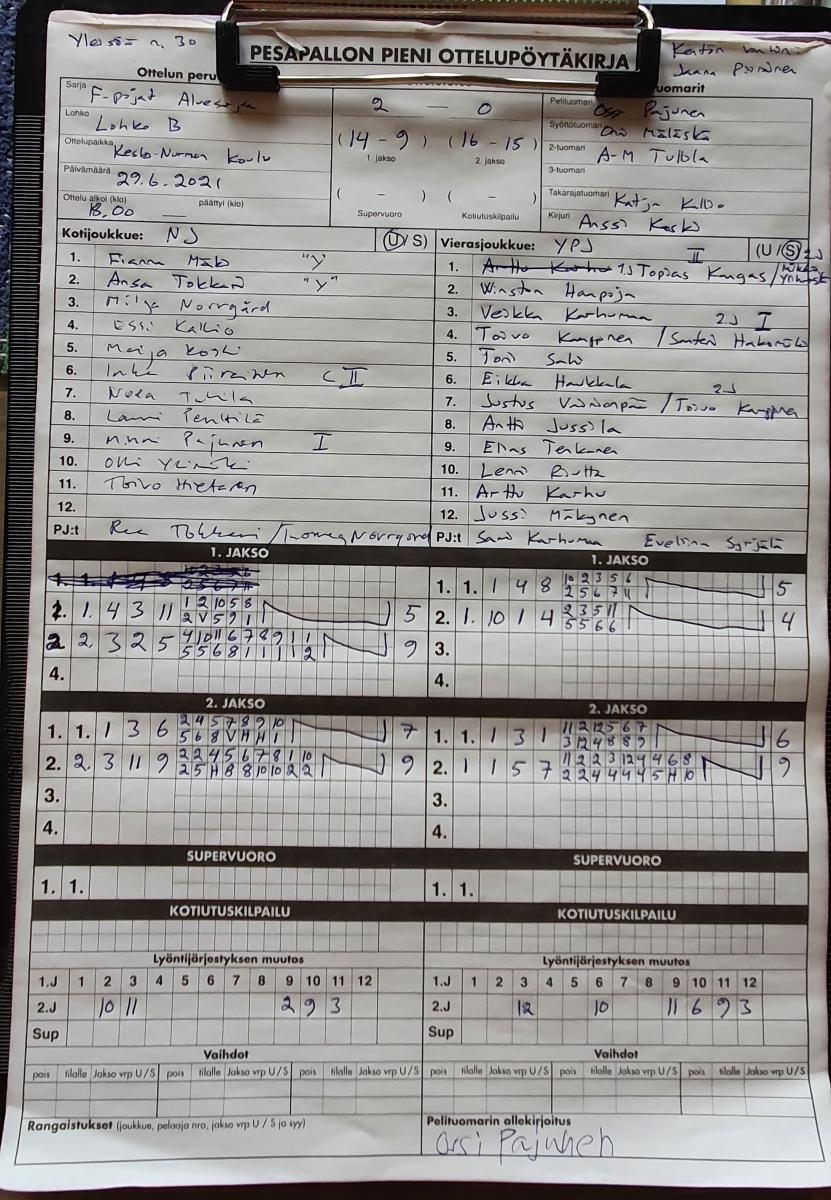 Yleisöä n. 30
PESÄPALLON PIENI OTTELUPÖYTÄKIRJA
Jaana
Ottelun peru
uomarit
Sarja F-pojat
Lohko Lohko B
Ottelupaikka Kesko-Nurmon Koulu
Päivämäärä 29.6.2021
Ottelu alkoi (klo) 18.00 päättyi (klo) —
2 — 0
(14 - 9) (16 - 15)
1. jakso 2. jakso
( - ) ( - )
Supervuoro Kotiutuskilpailu
Pelituomari Ossi Pajunen
Syöttötuomari Onni Mäläskä
2-tuomari A-M Tulola
3-tuomari
Takarajatuomari Katja
Kirjuri Anssi Koski
Kotijoukkue: NJ (U/S)
1. Fianna Mäki "Y"
2. Ansa Tokkari "Y"
3. Milja Norrgård
4. Essi Kallio
5. Maija Koski
6. Inka Piirainen C II
7. Neea Tulola
8. Lauri Penttilä
9. Minni Pajunen I
10. Olli Ylimäki
11. Toivo Hietanen
12.
PJ:t Rea Tokkari / Tuomas Norrgård
Vierasjoukkue: YPJ II (U/S)
1. Arttu Karhu 1J Topias Kangas /
2. Winston Haapoja
3. Veikka Karhumaa 2.J I
4. Toivo Kamppinen / Santeri
5. Toni Salo
6. Eikka Haukkala 2J
7. Justus Vainionpää / Toivo Kamppinen
8. Antti Jussila
9. Elias
10. Lenni
11. Arttu Karhu
12. Jussi Mäkynen
PJ:t Sami Karhumaa Eveliina Syrjälä
1. JAKSO
1. 1. 4 3 11 1 2 10 5 8 5
2 V 5 9 1
2. 2. 3 2 5 4 10 11 6 7 8 9 1 1 9
5 5 6 8 1 1 1 1 2
4.
1. JAKSO
1. 1. 1 4 8 10 2 3 5 6 5
2 5 6 7 11
2. 1. 10 1 4 2 3 5 11 4
5 5 6 6
3.
4.
2. JAKSO
1. 1. 1 3 6 2 4 5 7 8 9 10 7
5 6 8 V H H 1
2. 2. 3 11 9 2 2 4 5 6 7 8 1 10 9
2 5 H 8 8 10 10 2 2
3.
4.
2. JAKSO
1. 1. 1 3 1 11 2 12 5 6 7 6
3 12 4 8 8 9
2. 1 1 5 7 11 2 2 3 12 4 4 6 8 9
2 2 4 4 4 4 5 H 10
3.
4.
SUPERVUORO
1. 1.
SUPERVUORO
1. 1.
KOTIUTUSKILPAILU
KOTIUTUSKILPAILU
Lyöntijärjestyksen muutos
1.J 1 2 3 4 5 6 7 8 9 10 11 12
2.J 10 11 2 9 3
Sup
Lyöntijärjestyksen muutos
1.J 1 2 3 4 5 6 7 8 9 10 11 12
2.J 12 10 11 6 9 3
Sup
Vaihdot
pois tilalle Jakso vrp U / S pois tilalle Jakso vrp U / S pois tilalle Jakso vrp U / S
Vaihdot
pois tilalle Jakso vrp U / S pois tilalle Jakso vrp U / S pois tilalle Jakso vrp U / S
Rangaistukset (joukkue, pelaaja nro, jakso vrp U / S ja syy)
Pelituomarin allekirjoitus
Ossi Pajunen